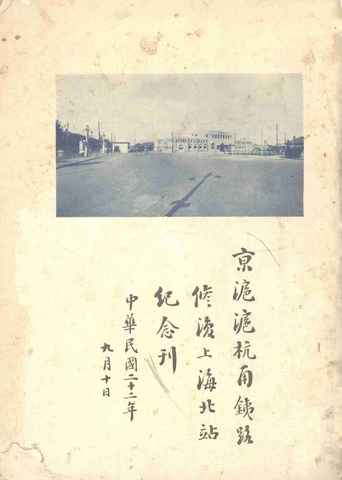 京滬滬杭甬鐵路
修復上海北站
紀念刊
中華民國二十二年
九月十日